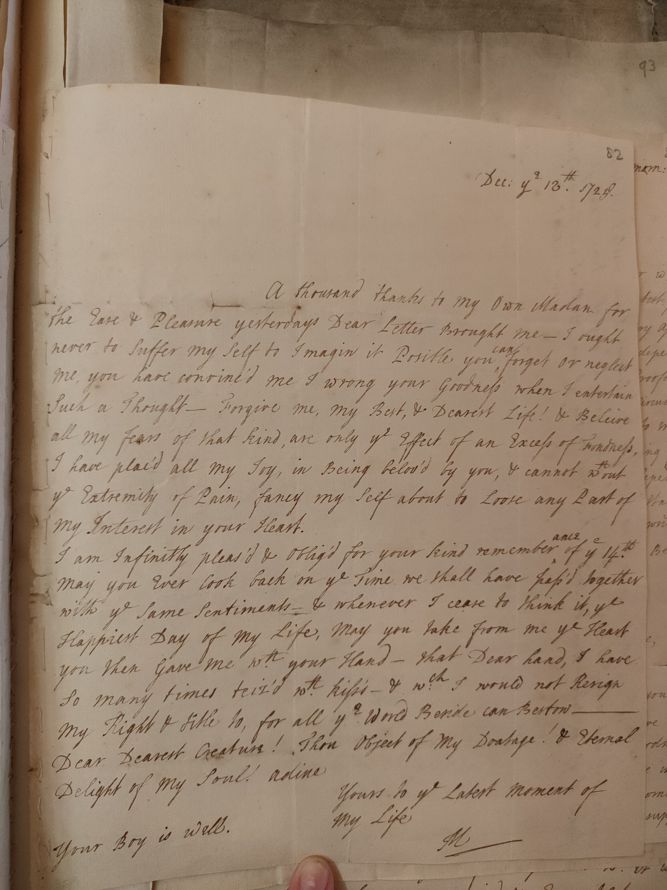 93
82
Dec: ye 13th. 1728.
A thousand thanks to my Own Madan for
the Ease & Pleasure yesterdays Dear Letter Brought me — I ought
never to Suffer my Self to Imagin it Posible you can forget or neglect
Me, you have convinc'd me I wrong your Goodness when I entertain
Such a Thought — Forgive me, my Best, & Dearest Life! & Beleive
all my fears of that kind, are only ye Effect of an Excess of Fondness,
I have plac'd all my Joy, in Being belov'd by you, & cannot wthout
ye Extremity of Pain, fancy my Self about to Loose any Part of
My Interest in your Heart.
I am Infinitly pleas'd & Oblig'd for your kind rememberance of ye 14th
May you Ever Look back on ye Time we shall have pass'd together
with ye Same Sentiments — & whenever I cease to think it, ye
Happiest Day of My Life, May you take from me ye Heart
you then Gave Me wth your Hand — that Dear hand, I have
So many times teiz'd wth kiss's — & wch I would not Resign
My Right & title to, for all ye World Beside can Bestow —
Dear Dearest Creature! Thou Object of My Doatage! & Eternal
Delight of My Soul! adine
Yours to ye Latest Moment of
My Life
M
Your Boy is well.